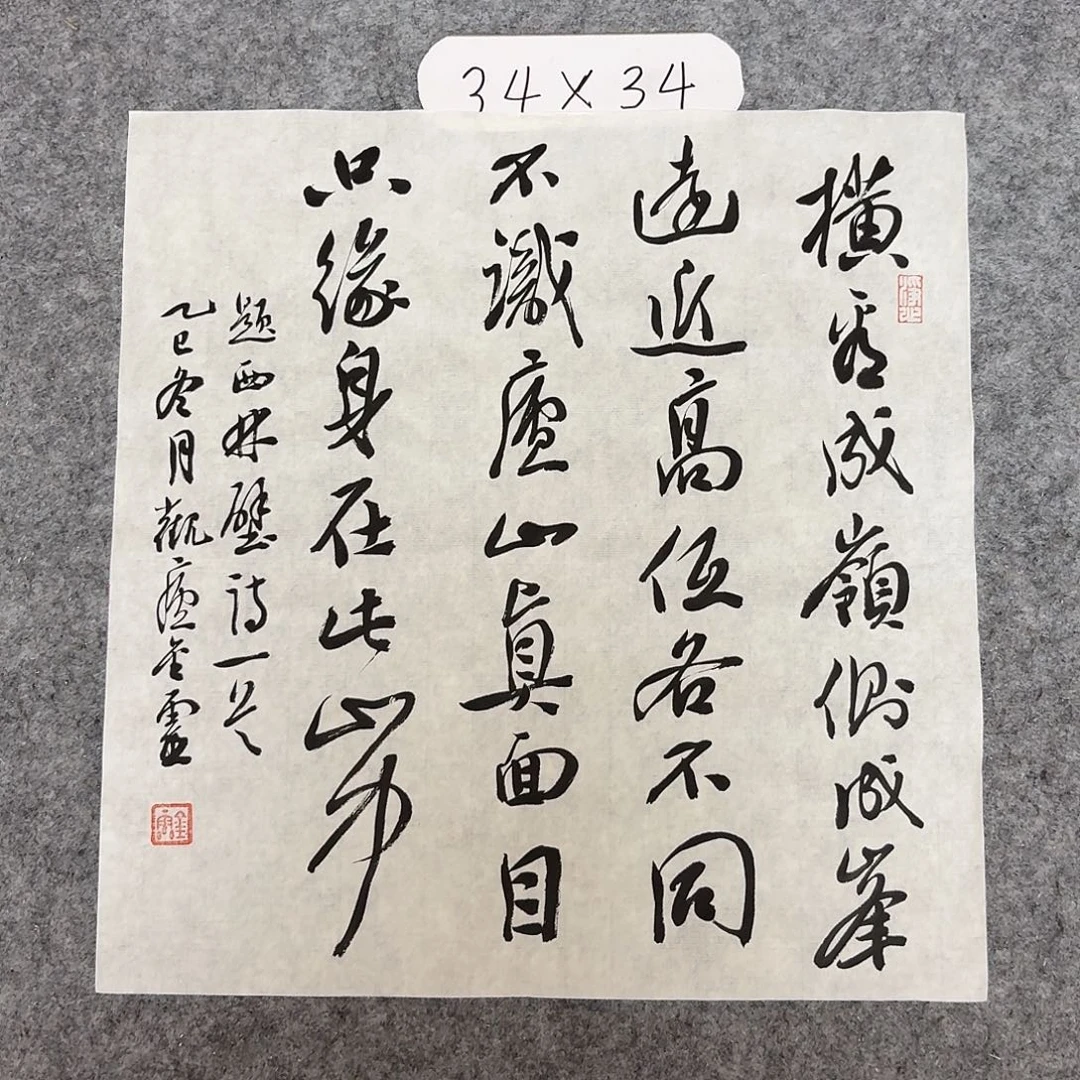 34×34
橫看成嶺側成峯
遠近高低各不同
不識廬山眞面目
只緣身在此山中
題西林壁詩一首
乙巳冬月觀廬金靈